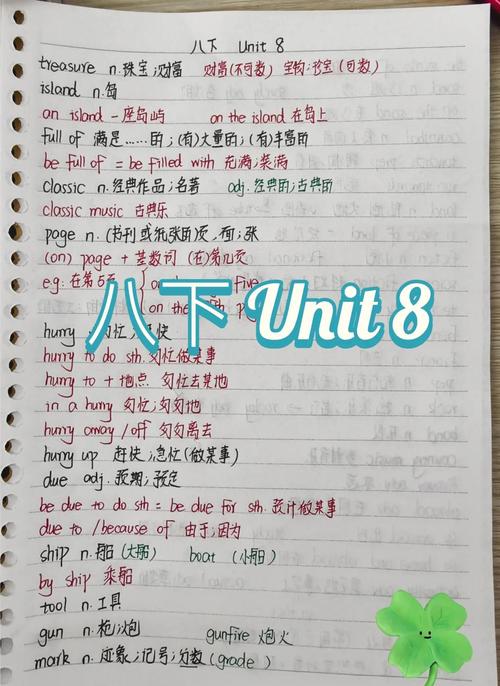 八下 Unit 8
treasure n.珠宝;财富 财富(不可数) 宝物;珍宝(可数)
island n.岛
an island 一座岛屿 on the island 在岛上
full of 满是……的;(有)大量的;(有)丰富的
be full of = be filled with 充满;装满
classic n.经典作品;名著 adj.经典的;古典的
classic music 古典乐
page n.(书刊或纸张的)页,面;张
(on) page + 基数词 (在)第几页
e.g.在第5页 on five
on the page
八下 Unit 8
hurry 匆忙;快
hurry to do sth.匆忙做某事
hurry to + 地点 匆忙去某地
in a hurry 匆忙;匆匆地
hurry away / off 匆匆离去
hurry up 赶快;急忙(做某事)
due adj.预期;预定
be due to do sth = be due for sth.预计做某事
due to / because of 由于;因为
ship n.船(大船) boat (小船)
by ship 乘船
tool n.工具
gun n.枪;炮 gunfire 炮火
mark n.迹象;记号;分数(grade)